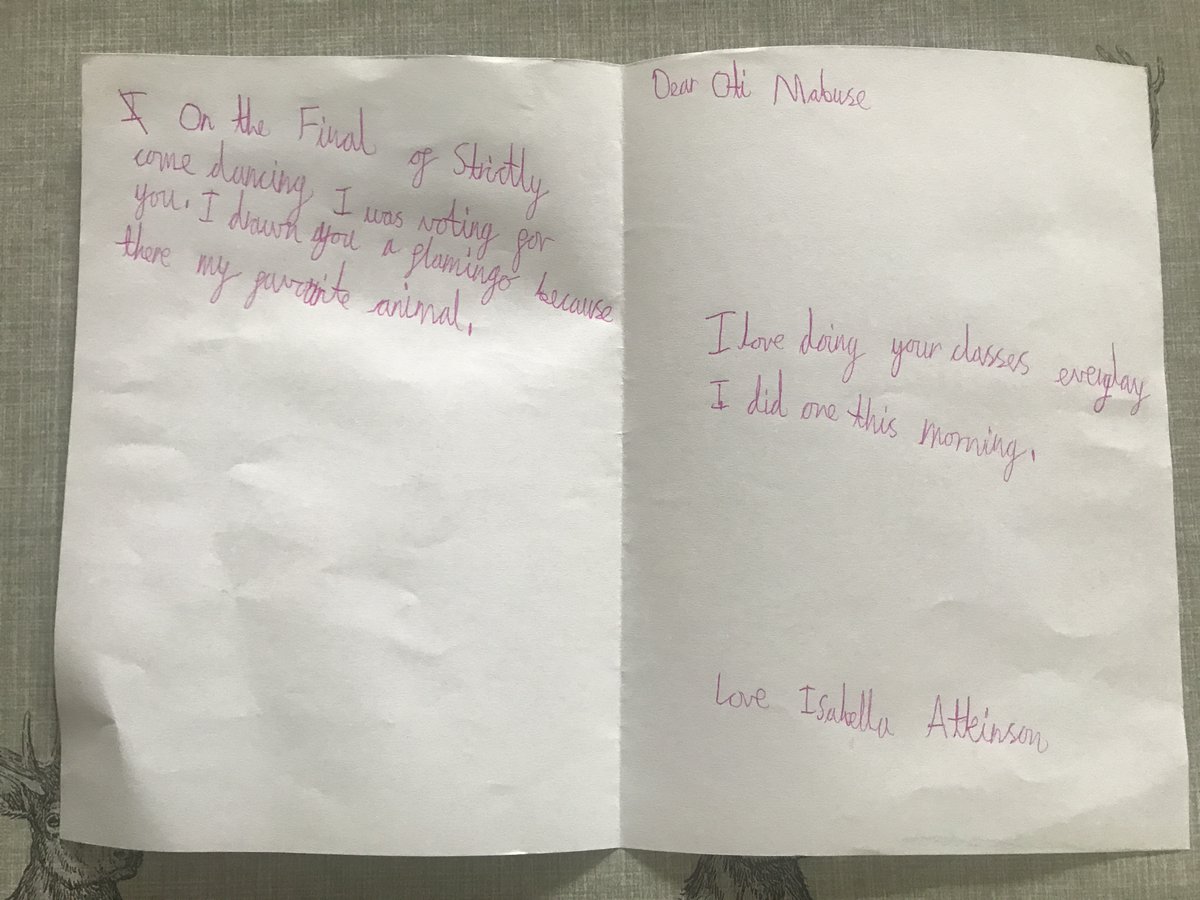 I On the Final of Strictly
come dancing I was voting for
you. I drawn you a flamingo because
there my favorite animal.
Dear Oti Mabuse
I love doing your classes everyday
I did one this morning.
Love Isabella Atkinson